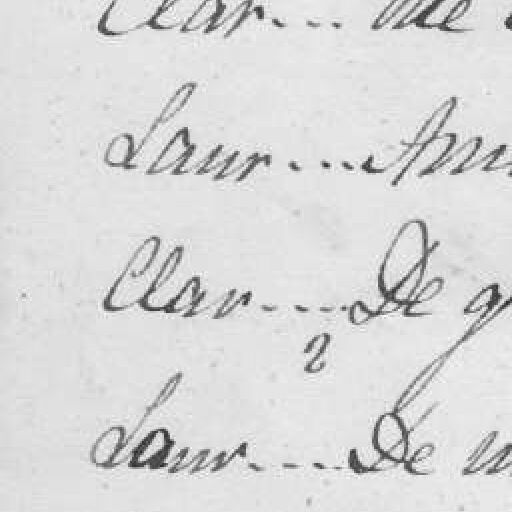 Clar... Me
Laur... Ami
Clar.... De q
2
Laur.... De m